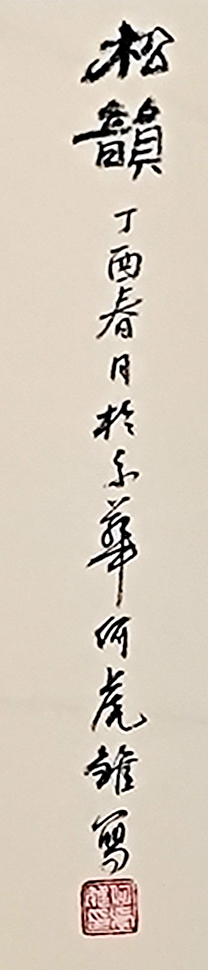 松韻丁酉春月於京華何虎雄寫